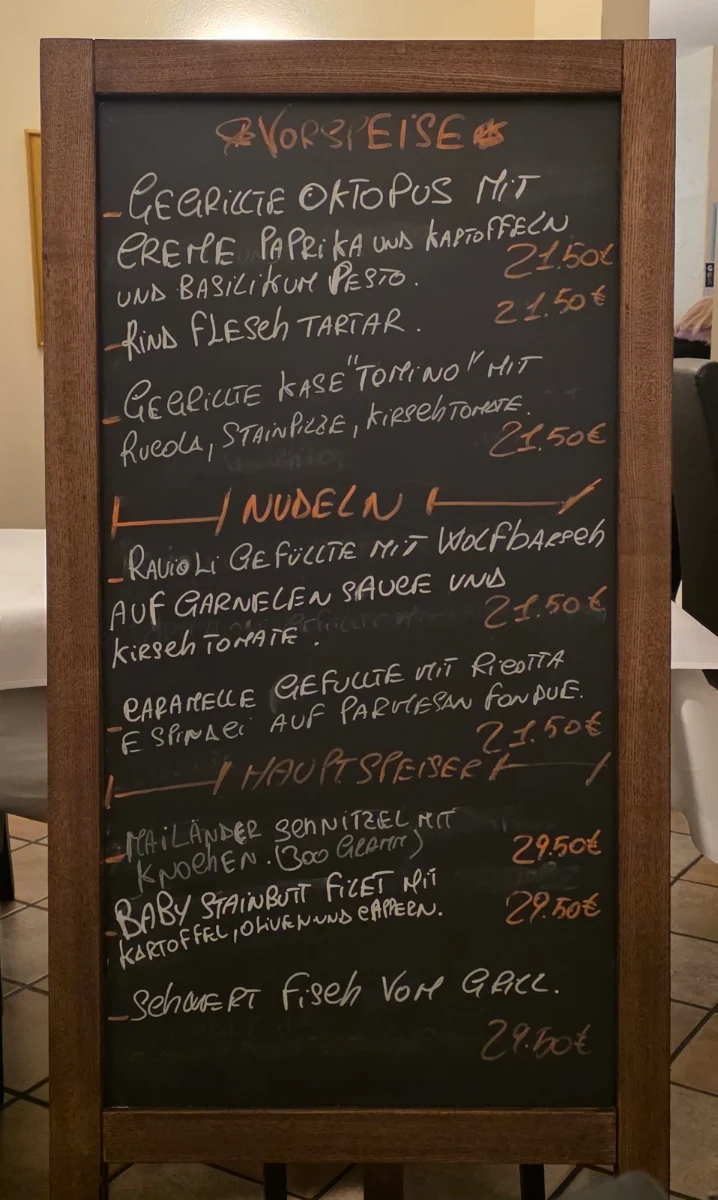 VORSPEISE
- GEGRILLTE OKTOPUS MIT
CREME PAPRIKA UND KARTOFFELN
UND BASILIKUM PESTO. 21.50€
- RIND FLESCH TARTAR. 21.50€
- GEGRILLTE KASE "TOMINO" MIT
RUCOLA, STAINPILZE, KIRSCHTOMATE.
21.50€
NUDELN
- RAVIOLI GEFÜLLTE MIT WOLFBARSCH
AUF GARNELEN SAUCE UND
KIRSCHTOMATE. 21.50€
- CARAMELLE GEFULLTE MIT RICOTTA
E SPINACI AUF PARMESAN FONDUE.
21.50€
HAUPTSPEISER
- MAILÄNDER SCHNITZEL MIT
KNOCHEN. (300 GRAMM) 29.50€
- BABY STAINBUTT FILET MIT
KARTOFFEL, OLIVEN UND CAPPERN. 29.50€
- SCHWERT FISCH VOM GRILL.
29.50€